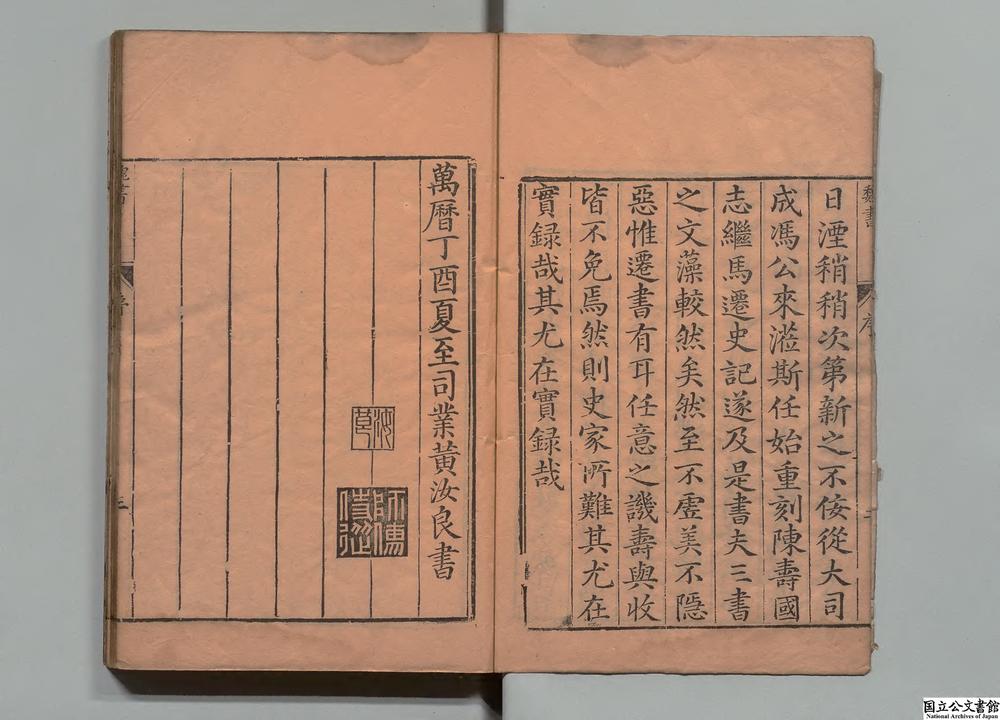 魏書
序
日湮稍稍次第新之不佞從大司
成馮公來涖斯任始重刻陳壽國
志繼馬遷史記遂及是書夫三書
之文藻較然矣然至不虛美不隱
惡惟遷書有耳任意之譏壽與收
皆不免焉然則史家所難其尤在
實録哉其尤在實録哉
萬曆丁酉夏至司業黃汝良書
師傅侍從
国立公文書館
National Archives of Japan